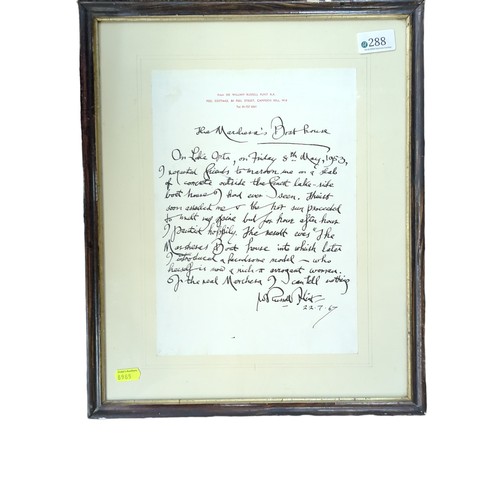 288
From SIR WILLIAM RUSSELL FLINT R.A.
PEEL COTTAGE, 80 PEEL STREET, CAMPDEN HILL, W.8
The Marchesa's Boat house
On Lake Orta, on Friday 8th May, 1953,
I requested friends to maroon me on a slab
of concrete outside the finest lake-side
boat house I had ever seen. Thirst
soon assailed me & the hot sun proceeded
to melt my spine but for hour after hour
I painted happily. The result was "The
Marchesa's Boat house into which later
I introduced a handsome model - who
herself is now a rich & arrogant woman.
Of the real Marchesa I can tell nothing
W Russell Flint
22.7.67